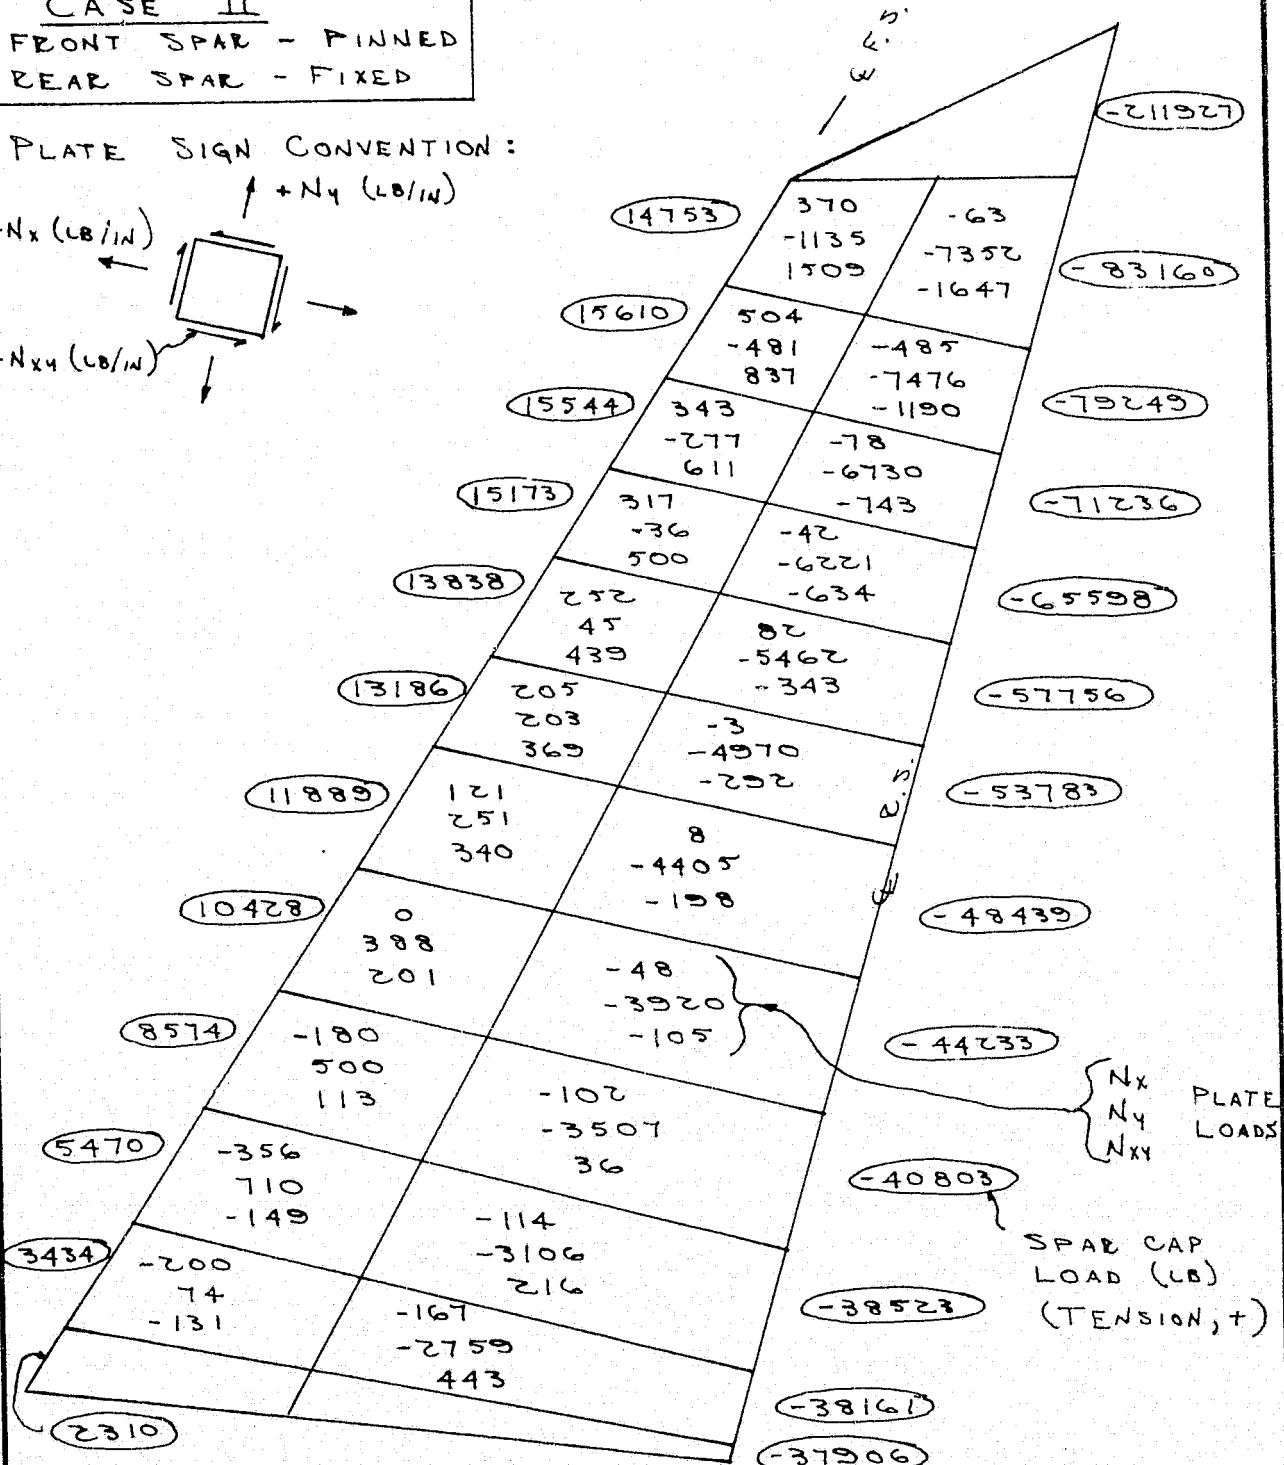 CASE II
FRONT SPAR - PINNED
REAR SPAR - FIXED
PLATE SIGN CONVENTION:
+Ny (LB/IN)
-Nx (LB/IN)
-Nxy (LB/IN)
℄ F.S.
-211927
14753
370
-1135
1509
-63
-7352
-1647
-83160
15610
504
-481
837
-485
-7476
-1190
-79249
15544
343
-277
611
-78
-6730
-743
-71236
15173
317
-36
500
-42
-6221
-634
-65598
13838
252
45
439
82
-5462
-343
-57756
13186
205
203
369
-3
-4970
-292
-53783
℄ R.S.
11889
121
251
340
8
-4405
-198
-48439
10428
0
388
201
-48
-3920
-105
-44233
Nx
Ny
Nxy
PLATE
LOADS
8574
-180
500
113
-102
-3507
36
-40803
SPAR CAP
LOAD (LB)
(TENSION, +)
5470
-356
710
-149
-114
-3106
216
-38523
3434
-200
74
-131
-167
-2759
443
-38161
2310
-37906